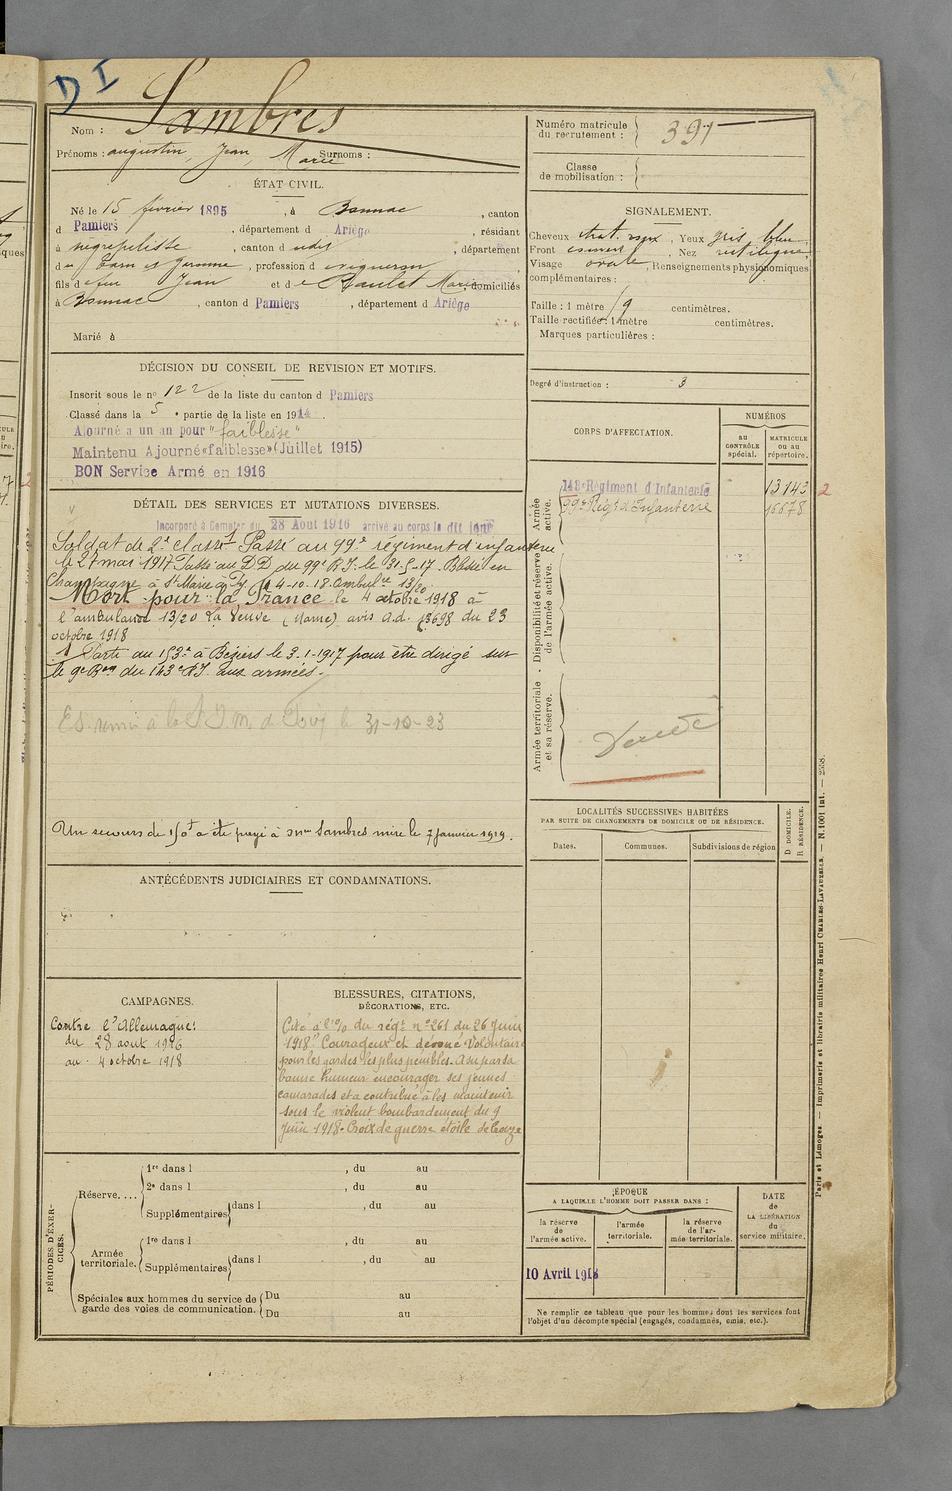 D I
Nom : Sambres
Prénoms : augustin, Jean, Marie Surnoms :
ÉTAT CIVIL.
Né le 15 février 1895, à Bonnac, canton
d Pamiers, département d Ariège, résidant
à negrepelisse, canton d udit, département
du Tarn et Garonne, profession d
fils d e feu Jean et d e Raulet Marie, domiciliés
à Bonnac, canton d Pamiers, département d Ariège
Marié à
DÉCISION DU CONSEIL DE REVISION ET MOTIFS.
Inscrit sous le n° 122 de la liste du canton d Pamiers
Classé dans la 5e partie de la liste en 1914.
Ajourné a un an pour "faiblesse"
Maintenu Ajourné «faiblesse» (Juillet 1915)
BON Service Armé en 1916
DÉTAIL DES SERVICES ET MUTATIONS DIVERSES.
Incorporé à Compter du 28 Aout 1916 arrivé au corps le dit jour
Soldat de 2e classe 1 Passé au 99e régiment d'infanterie
le 27 mai 1917 Passé au DD du 99e R.I. le 31-5-17. Blessé en
Champagne à St Marie à Py le 4-10-18. Ambulce 13/20
Mort pour la France le 4 octobre 1918 à
l'ambulance 13/20 La Veuve (Marne) avis a.d. 13698 du 23
octobre 1918
1 Parti au 153e à Béziers le 3-1-1917 pour être dirigé sur
le 9e Bon du 143e R.I. aux armées.
E.S. remis à la S.I.M. de Foix le 31-10-23
Un secours de 150f a été payé à Mme Sambres mère le 7 janvier 1919.
ANTÉCÉDENTS JUDICIAIRES ET CONDAMNATIONS.
CAMPAGNES.
Contre l'Allemagne:
du 28 aout 1916
au 4 octobre 1918
BLESSURES, CITATIONS,
DÉCORATIONS, ETC.
Cité à l'o/ du régt n° 261 du 26 juin
1918 "Courageux et dévoué Volontaire
pour les gardes les plus pénibles. A su par sa
bonne humeur encourager ses jeunes
camarades et a contribué à les maintenir
sous le violent bombardement du 9
Juin 1918. Croix de guerre étoile de bronze
PÉRIODES D'EXERCICES.
Réserve....
1re dans l , du au
2e dans l , du au
Supplémentaires dans l , du au
Armée territoriale.
1re dans l , du au
Supplémentaires dans l , du au
Spéciales aux hommes du service de garde des voies de communication.
Du au
Du au
Numéro matricule
du recrutement : 391
Classe
de mobilisation :
SIGNALEMENT.
Cheveux chat. roux, Yeux gris bleu,
Front couvert, Nez rectiligne,
Visage ovale, Renseignements physionomiques
complémentaires :
Taille : 1 mètre 59 centimètres.
Taille rectifiée : 1 mètre centimètres.
Marques particulières :
Degré d'instruction : 3
CORPS D'AFFECTATION.
NUMÉROS
au CONTRÔLE spécial.
MATRICULE ou au répertoire.
Armée active.
143e Régiment d'Infanterie 13143 2
99e Régt d'Infanterie 16678
Disponibilité et réserve de l'armée active.
Armée territoriale et sa réserve.
LOCALITÉS SUCCESSIVES HABITÉES
PAR SUITE DE CHANGEMENTS DE DOMICILE OU DE RÉSIDENCE.
Dates.
Communes.
Subdivisions de région
D DOMICILE.
R RÉSIDENCE.
ÉPOQUE
A LAQUELLE L'HOMME DOIT PASSER DANS :
la réserve de l'armée active.
l'armée territoriale.
la réserve de l'armée territoriale.
DATE de LA LIBÉRATION du service militaire.
10 Avril 1918
Ne remplir ce tableau que pour les hommes dont les services font
l'objet d'un décompte spécial (engagés, condamnés, omis, etc.).
Paris et Limoges. — Imprimerie et librairie militaires Henri CHARLES-LAVAUZELLE. — N. 1001 int. — 2558.